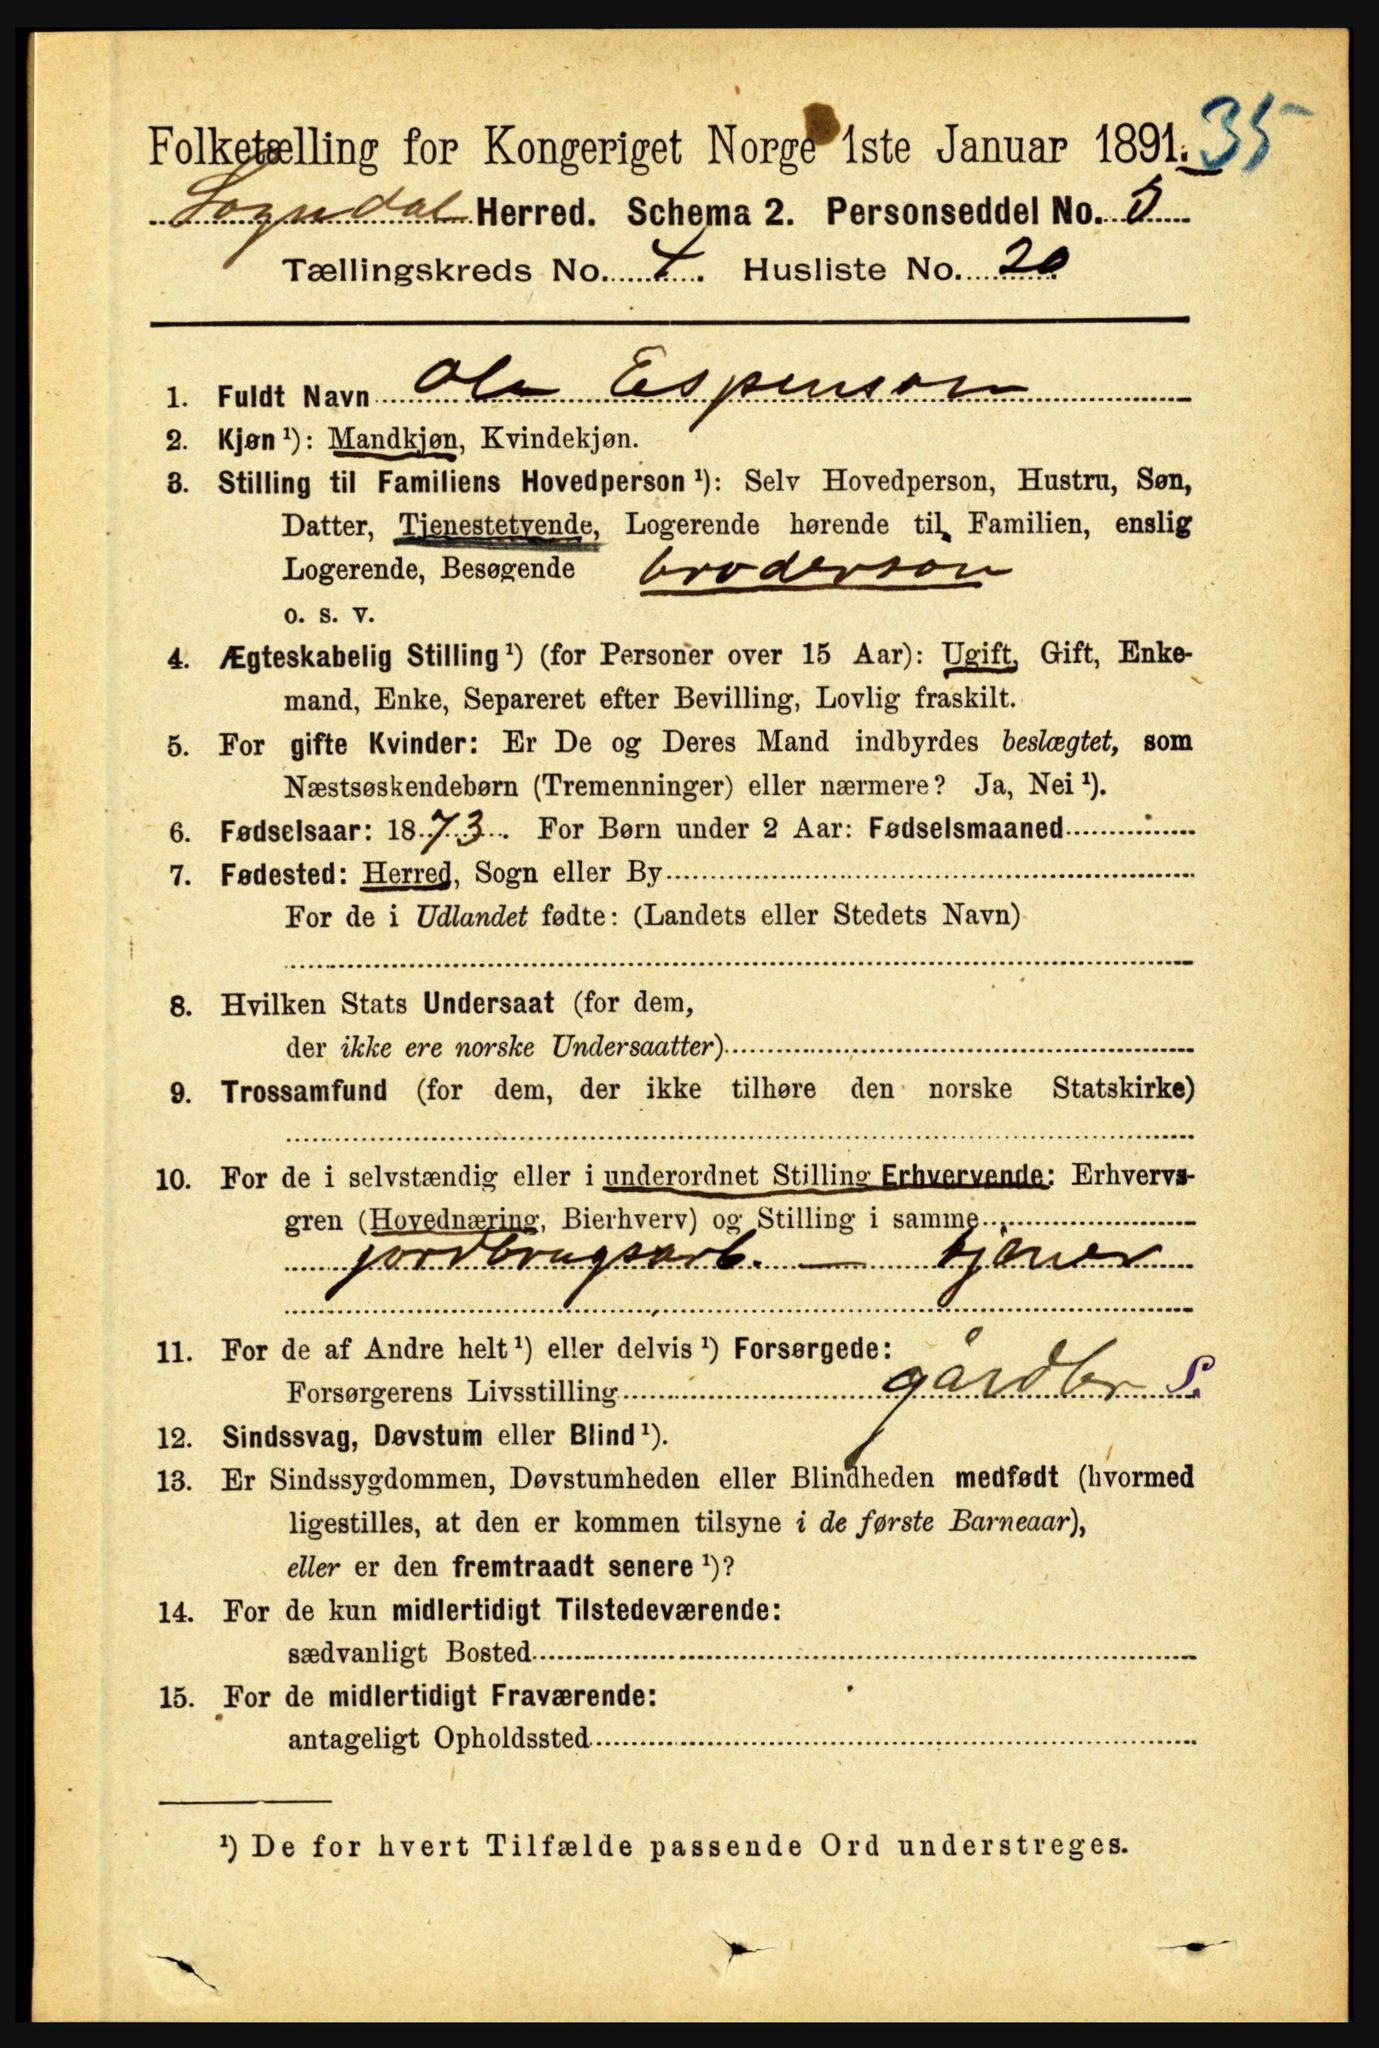 Folketælling for Kongeriget Norge 1ste Januar 1891. 35
Sogndal Herred. Schema 2. Personseddel No. 5
Tællingskreds No. 4. Husliste No. 20
1. Fuldt Navn Ole Espenson
2. Kjøn ¹): Mandkjøn, Kvindekjøn.
3. Stilling til Familiens Hovedperson ¹): Selv Hovedperson, Hustru, Søn,
Datter, Tjenestetyende, Logerende hørende til Familien, enslig
Logerende, Besøgende broderson
o. s. v.
4. Ægteskabelig Stilling ¹) (for Personer over 15 Aar): Ugift, Gift, Enke-
mand, Enke, Separeret efter Bevilling, Lovlig fraskilt.
5. For gifte Kvinder: Er De og Deres Mand indbyrdes beslægtet, som
Næstsøskendebørn (Tremenninger) eller nærmere? Ja, Nei ¹).
6. Fødselsaar: 1873. For Børn under 2 Aar: Fødselsmaaned
7. Fødested: Herred, Sogn eller By
For de i Udlandet fødte: (Landets eller Stedets Navn)
8. Hvilken Stats Undersaat (for dem,
der ikke ere norske Undersaatter)
9. Trossamfund (for dem, der ikke tilhøre den norske Statskirke)
10. For de i selvstændig eller i underordnet Stilling Erhvervende: Erhvervs-
gren (Hovednæring, Bierhverv) og Stilling i samme
jordbrugsarb. — tjener
11. For de af Andre helt ¹) eller delvis ¹) Forsørgede:
Forsørgerens Livsstilling gårdbr S.
12. Sindssvag, Døvstum eller Blind ¹).
13. Er Sindssygdommen, Døvstumheden eller Blindheden medfødt (hvormed
ligestilles, at den er kommen tilsyne i de første Barneaar),
eller er den fremtraadt senere ¹)?
14. For de kun midlertidigt Tilstedeværende:
sædvanligt Bosted
15. For de midlertidigt Fraværende:
antageligt Opholdssted
¹) De for hvert Tilfælde passende Ord understreges.